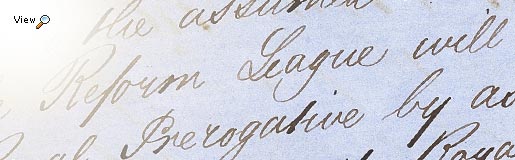 View
the assumed
Reform League will
Prerogative by